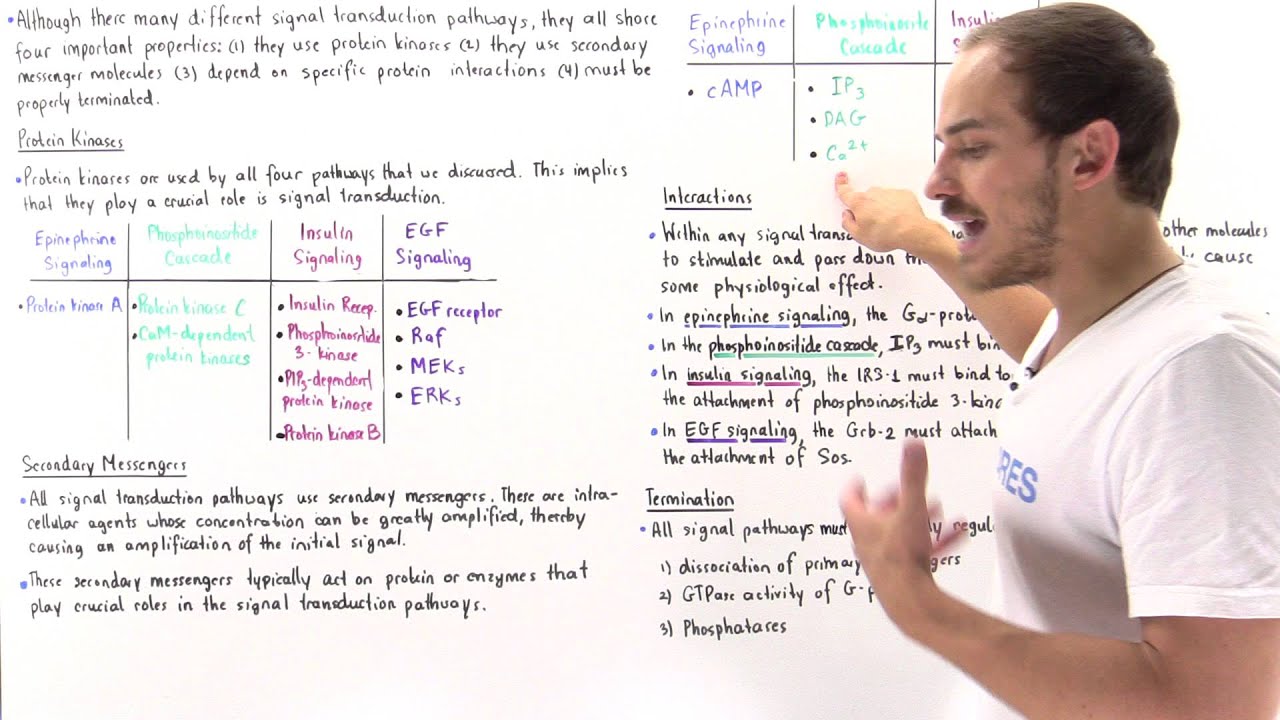 • Although there many different signal transduction pathways, they all share
four important properties: (1) they use protein kinases (2) they use secondary
messenger molecules (3) depend on specific protein interactions (4) must be
properly terminated.
Protein Kinases
• Protein kinases are used by all four pathways that we discussed. This implies
that they play a crucial role is signal transduction.
Epinephrine
Signaling
Phosphoinositide
Cascade
Insulin
Signaling
EGF
Signaling
• Protein kinase A
• Protein kinase C
• CaM-dependent
protein kinases
• Insulin Recep.
• Phosphoinositide
3-kinase
• PIP3-dependent
protein kinase
• Protein kinase B
• EGF receptor
• Raf
• MEKs
• ERKs
Secondary Messengers
• All signal transduction pathways use secondary messengers. These are intra-
cellular agents whose concentration can be greatly amplified, thereby
causing an amplification of the initial signal.
• These secondary messengers typically act on protein or enzymes that
play crucial roles in the signal transduction pathways.
Epinephrine
Signaling
Phosphoinosite
Cascade
Insu
S
• cAMP
• IP3
• DAG
• Ca2+
Interactions
• Within any signal trans other molecules
to stimulate and pass down cause
some physiological effect.
• In epinephrine signaling, the Gα-prot
• In the phosphoinositide cascade, IP3 must bin
• In insulin signaling, the IRS-1 must bind to
the attachment of phosphoinositide 3-kina
• In EGF signaling, the Grb-2 must attach
the attachment of Sos.
Termination
• All signal pathways must regul
1) dissociation of primary gers
2) GTPase activity of G-p
3) Phosphatases
RES